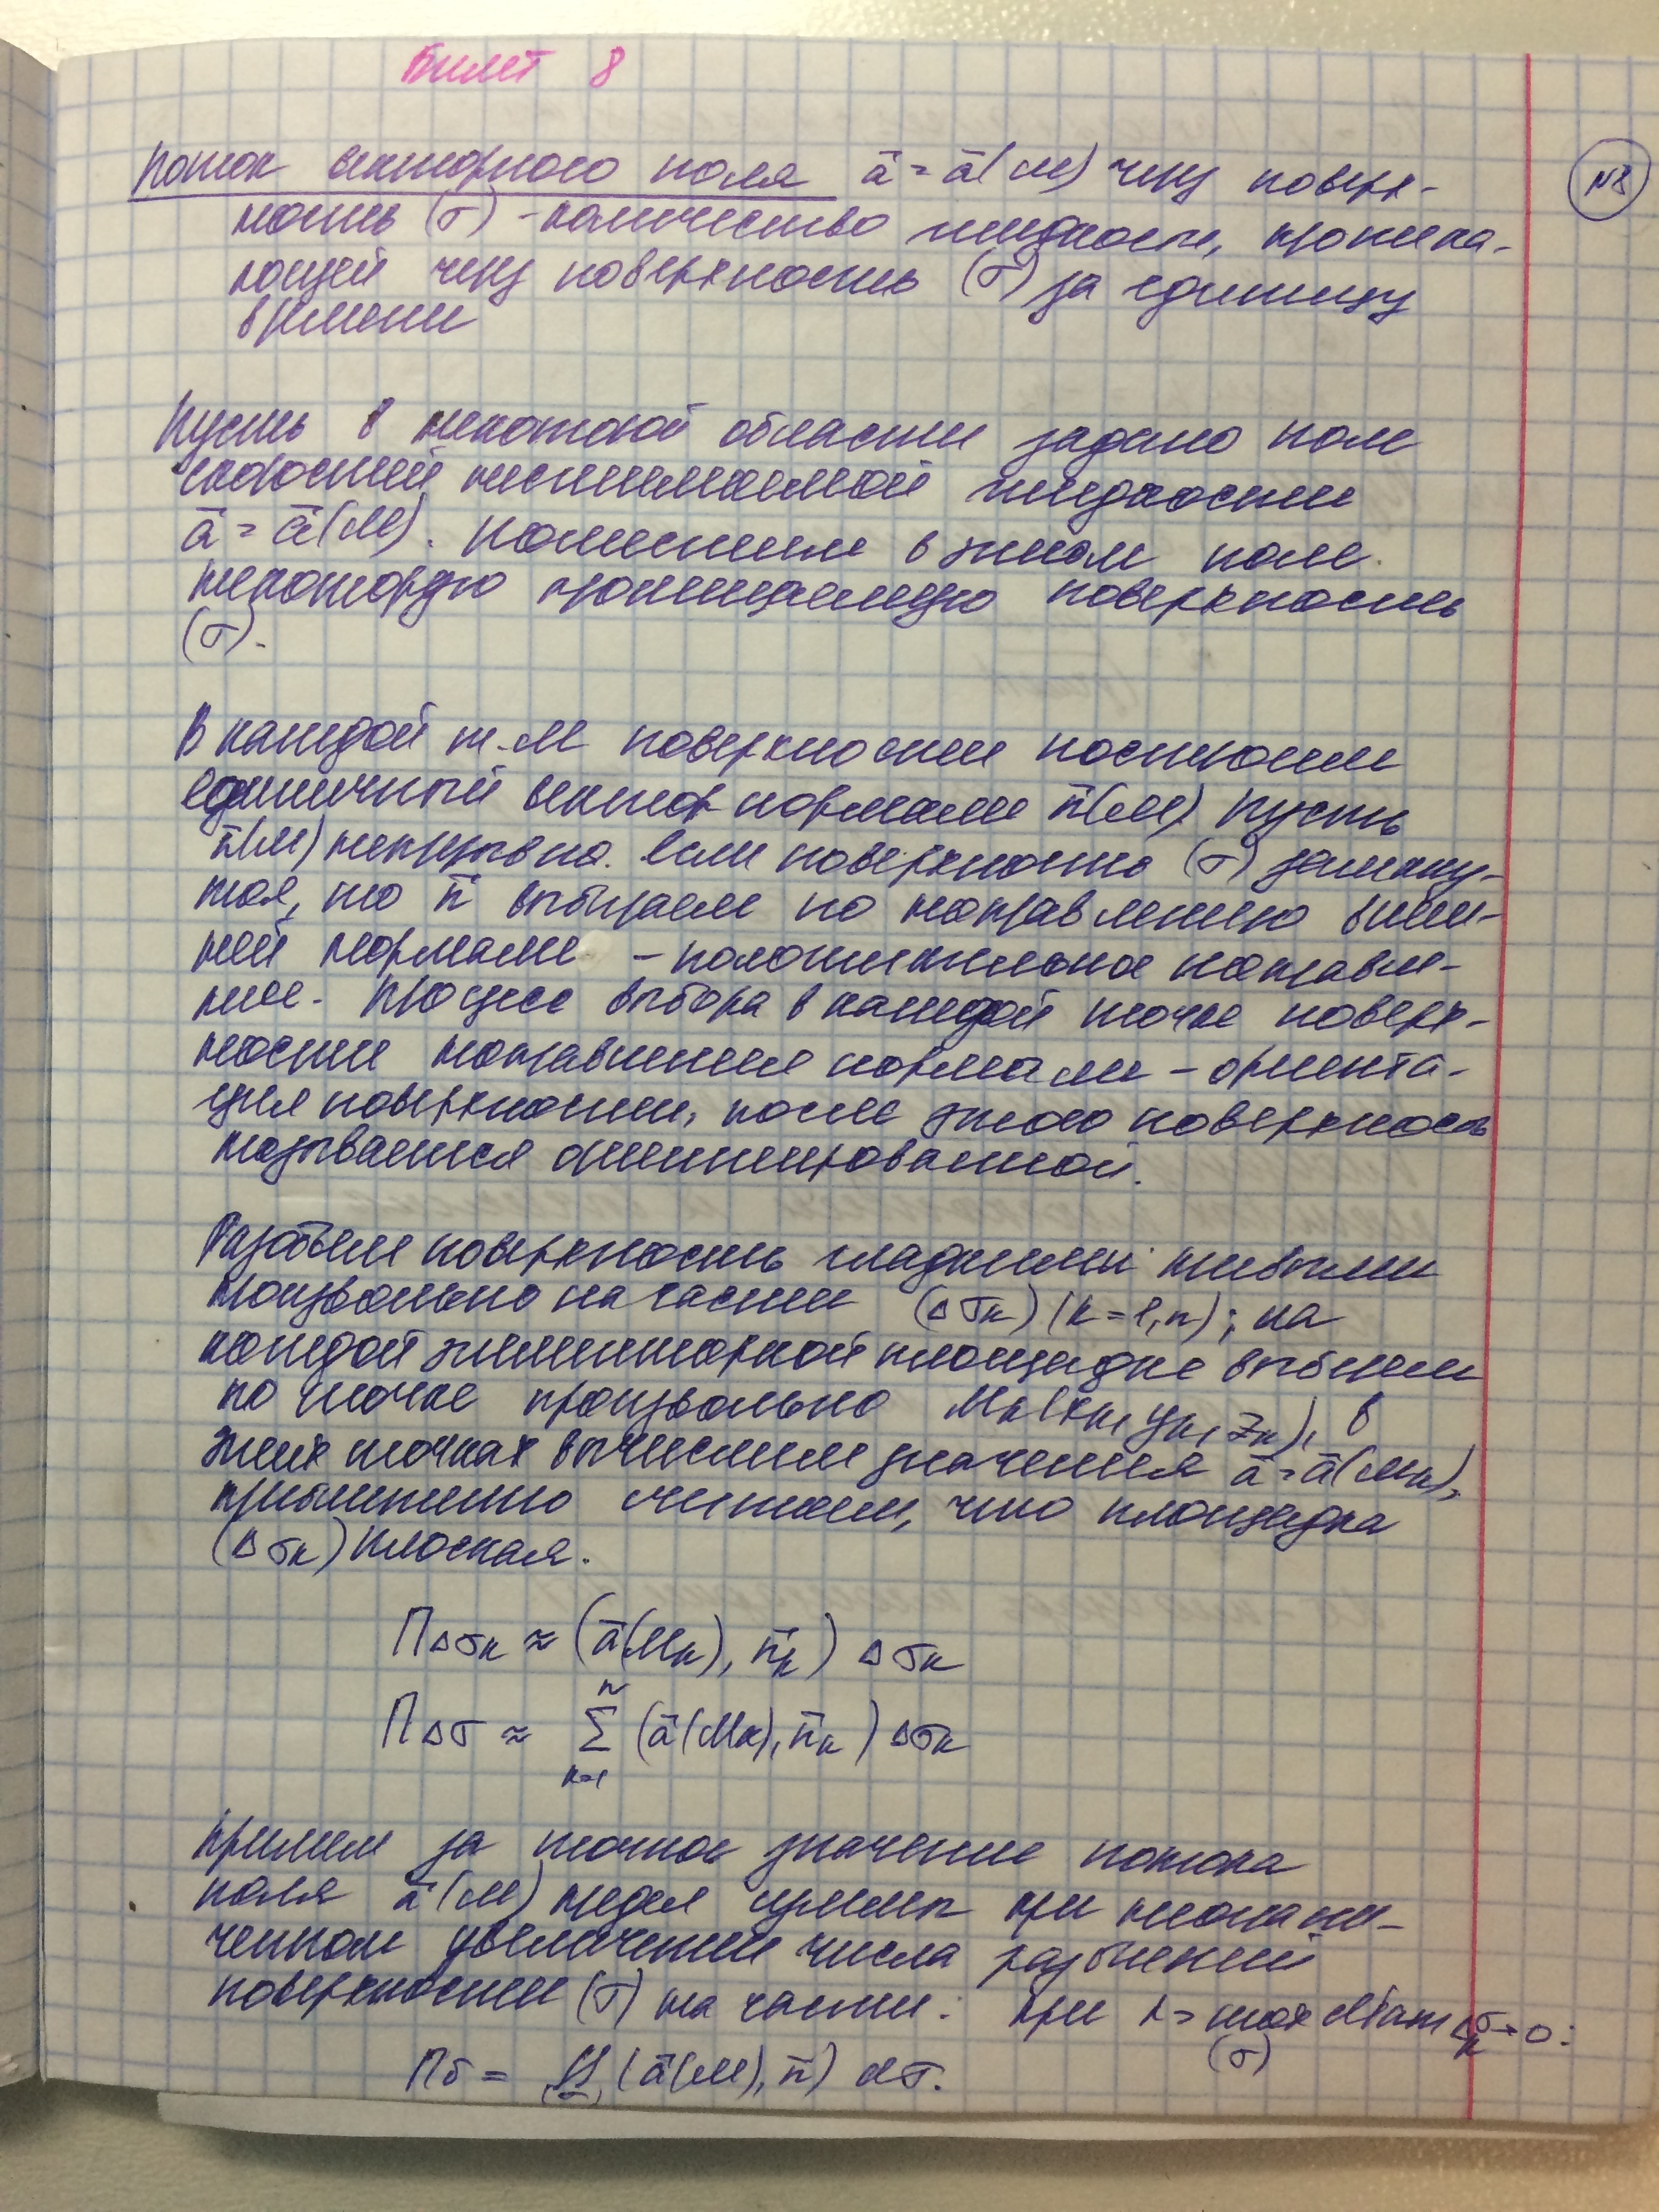 Билет 8
№8
Поток векторного поля ā = ā(М) через поверх-
ность (σ) - количество жидкости, протека-
ющей через поверхность (σ) за единицу
времени
Пусть в некоторой области задано поле
скоростей несжимаемой жидкости
ā = ā(М). Поместим в этом поле
некоторую проницаемую поверхность
(σ).
В каждой т. М поверхности построим
единичный вектор нормали n̄(М). Пусть
n̄(М) непрерывна. Если поверхность (σ) замкну-
тая, то n̄ выбираем по направлению внеш-
ней нормали - положительное направле-
ние. Процесс выбора в каждой точке поверх-
ности направления нормали - ориента-
ция поверхности, после этого поверхность
называется ориентированной.
Разобьем поверхность гладкими кривыми
произвольно на части (Δσk) (k=1,n); на
каждой элементарной площадке выберем
по точке произвольно Mk(xk, yk, zk), в
этих точках вычислим значения ā = ā(Mk),
приближенно считаем, что площадка
(Δσk) плоская.
ПΔσk ≈ (ā(Mk), n̄k) Δσk
ПΔσ ≈ n∑k=1 (ā(Mk), n̄k) Δσk
Примем за точное значение потока
поля ā(М) предел суммы при неограни-
ченном увеличении числа разбиений
поверхности (σ) на части: при λ = max diam Δσk → 0:
(σ)
Пσ = ∬(σ) (ā(М), n̄) dσ.